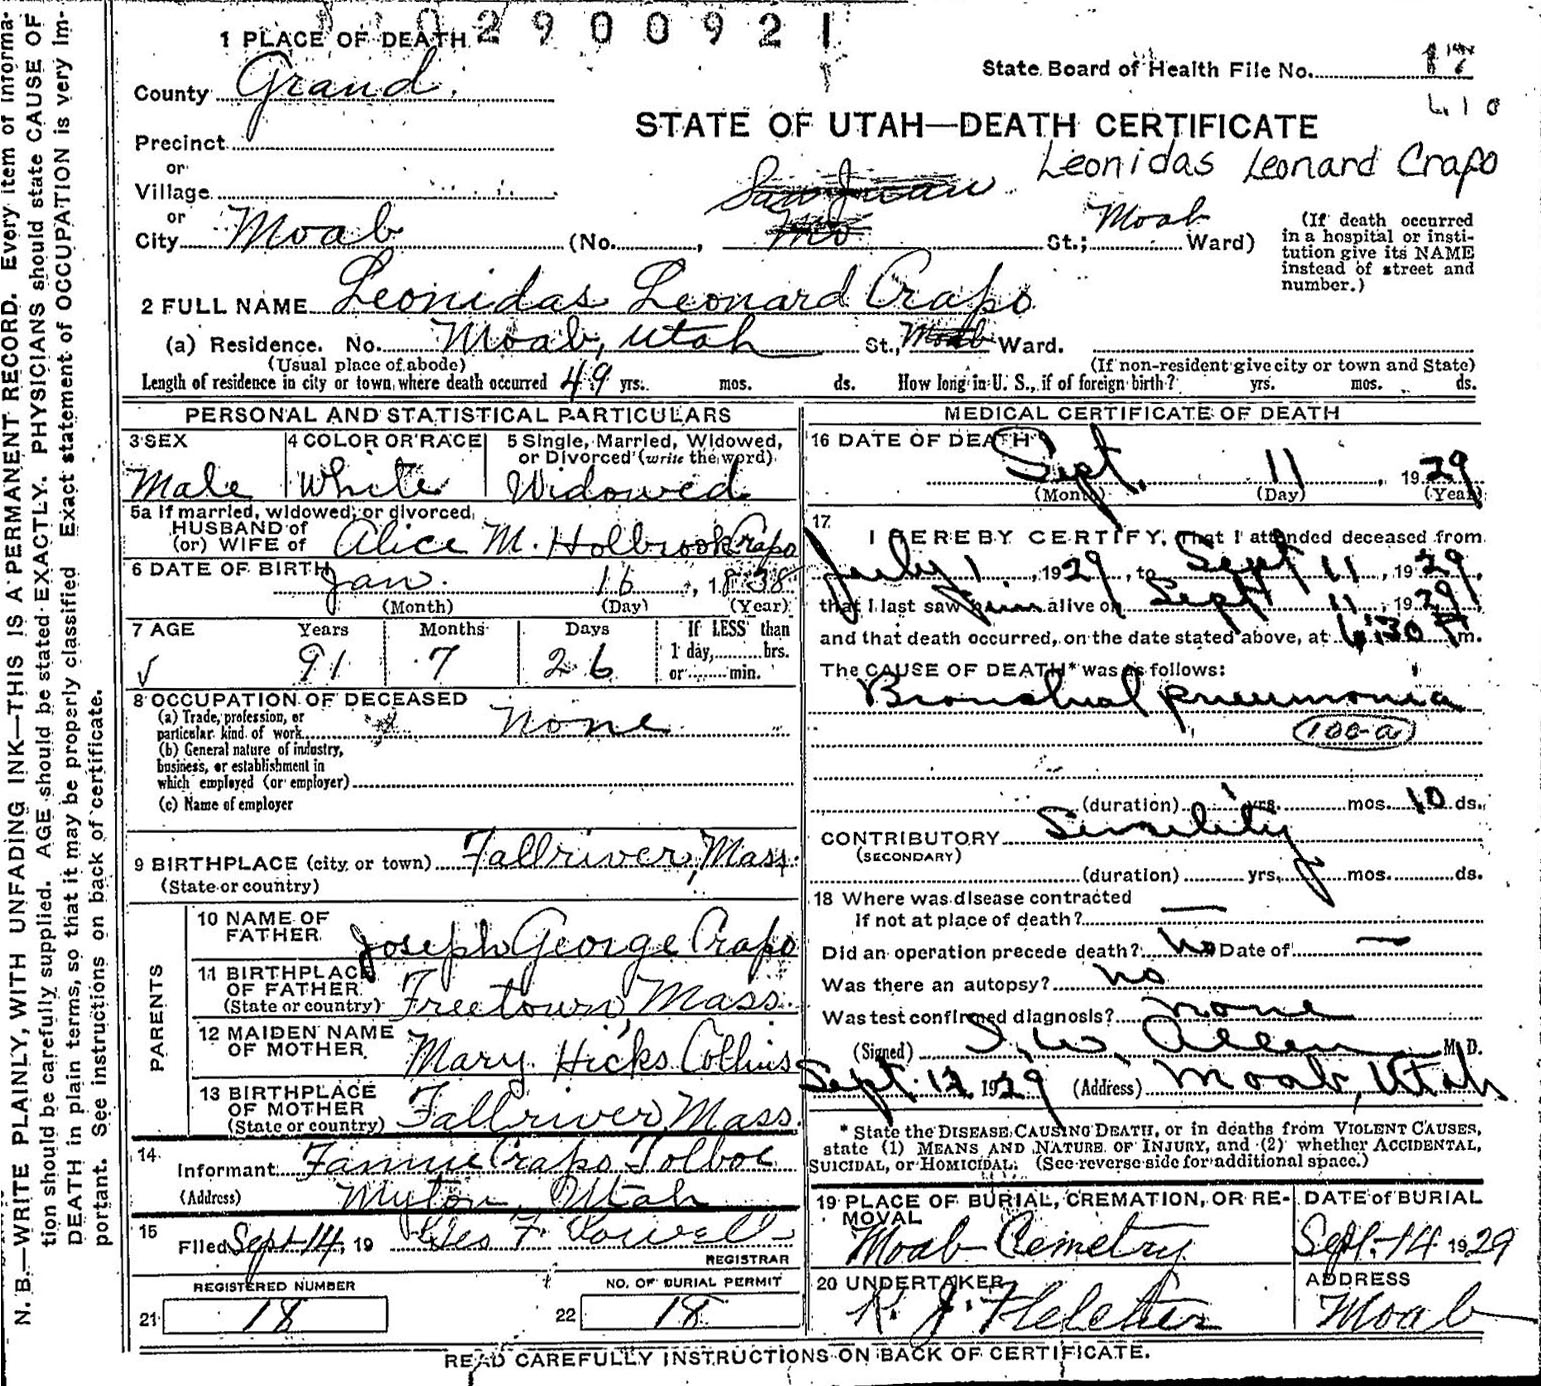 2900921
1 PLACE OF DEATH
State Board of Health File No. 17
410
County Grand.
STATE OF UTAH—DEATH CERTIFICATE
Leonidas Leonard Crapo
Precinct
or
Village
San Juan
or
City Moab (No. , Mo St.; Moab Ward)
(If death occurred in a hospital or insti-
tution give its NAME
instead of street and
number.)
2 FULL NAME Leonidas Leonard Crapo
(a) Residence. No. Moab, Utah St., Moab Ward.
(Usual place of abode) (If non-resident give city or town and State)
Length of residence in city or town where death occurred 49 yrs. mos. ds. How long in U. S., if of foreign birth? yrs. mos. ds.
PERSONAL AND STATISTICAL PARTICULARS
3 SEX 4 COLOR OR RACE 5 Single, Married, Widowed,
or Divorced (write the word)
Male White Widowed
5a If married, widowed, or divorced
HUSBAND of
(or) WIFE of Alice M. Holbrook Crapo
6 DATE OF BIRTH Jan. 16, 1838
(Month) (Day) (Year)
7 AGE Years Months Days If LESS than
1 day, hrs.
or min.
✓ 91 7 26
8 OCCUPATION OF DECEASED
(a) Trade, profession, or
particular kind of work None
(b) General nature of industry,
business, or establishment in
which employed (or employer)
(c) Name of employer
9 BIRTHPLACE (city or town) Fallriver, Mass.
(State or country)
PARENTS
10 NAME OF
FATHER Joseph George Crapo
11 BIRTHPLACE
OF FATHER
(State or country) Freetown, Mass.
12 MAIDEN NAME
OF MOTHER Mary Hicks Collins
13 BIRTHPLACE
OF MOTHER
(State or country) Fallriver, Mass.
14
Informant Fannie Crapo
(Address) Myton, Utah
15
Filed Sept 14, 19 Geo F Powell
REGISTRAR
REGISTERED NUMBER NO. OF BURIAL PERMIT
21 18 22 18
MEDICAL CERTIFICATE OF DEATH
16 DATE OF DEATH Sept. 11, 1929
(Month) (Day) (Year)
17
I HEREBY CERTIFY, That I attended deceased from
July 1, 1929, to Sept 11, 1929,
that I last saw him alive on Sept 11, 1929,
and that death occurred, on the date stated above, at 6:30 P m.
The CAUSE OF DEATH* was as follows:
Bronchial pneumonia
100-a
(duration) yrs. mos. 10 ds.
CONTRIBUTORY Senility
(SECONDARY)
(duration) yrs. mos. ds.
18 Where was disease contracted
if not at place of death? —
Did an operation precede death? No Date of —
Was there an autopsy? no
Was test confirmed diagnosis? none
(Signed) I. W. Allen M. D.
Sept. 12 1929 (Address) Moab, Utah
* State the DISEASE CAUSING DEATH, or in deaths from VIOLENT CAUSES,
state (1) MEANS AND NATURE OF INJURY, and (2) whether ACCIDENTAL,
SUICIDAL, or HOMICIDAL. (See reverse side for additional space.)
19 PLACE OF BURIAL, CREMATION, OR RE-
MOVAL
Moab Cemetry
DATE of BURIAL
Sept. 14 1929
20 UNDERTAKER
R. J. Fletcher
ADDRESS
Moab
READ CAREFULLY INSTRUCTIONS ON BACK OF CERTIFICATE.
N. B.—WRITE PLAINLY, WITH UNFADING INK—THIS IS A PERMANENT RECORD. Every item of informa-
tion should be carefully supplied. AGE should be stated EXACTLY. PHYSICIANS should state CAUSE OF
DEATH in plain terms, so that it may be properly classified. Exact statement of OCCUPATION is very im-
portant. See instructions on back of certificate.